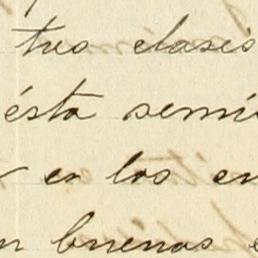 tres clases
ésta semi
en los en
buenas